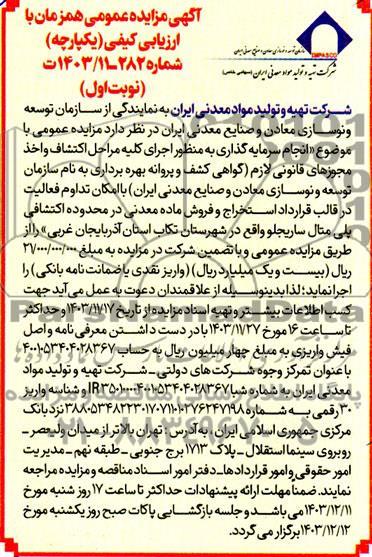 آگهی مزایده عمومی همزمان با
ارزیابی کیفی (یکپارچه)
شماره ۲۸۲-۱۴۰۳/۱۱ ت
(نوبت اول)
IMPASCO
شرکت تهیه و تولید مواد معدنی ایران (سهامی خاص)
شرکت تهیه و تولید مواد معدنی ایران به نمایندگی از سازمان توسعه
ونوسازی معادن و صنایع معدنی ایران در نظر دارد مزایده عمومی با
موضوع «انجام سرمایه گذاری به منظور اجرای کلیه مراحل اکتشاف و اخذ
مجوزهای قانونی لازم (گواهی کشف و پروانه بهره برداری به نام سازمان
توسعه و نوسازی معادن و صنایع معدنی ایران) با امکان تداوم فعالیت
در قالب قرارداد استخراج و فروش ماده معدنی در محدوده اکتشافی
پلی متال ساریجلو واقع در شهرستان تکاب استان آذربایجان غربی» را از
طریق مزایده عمومی و با تضمین شرکت در مزایده به مبلغ ۲۱/۰۰۰/۰۰۰/۰۰۰
ریال (بیست و یک میلیارد ریال) (واریز نقدی یا ضمانت نامه بانکی) را
اجرا نماید؛ لذا بدینوسیله از علاقمندان دعوت به عمل می آید جهت
کسب اطلاعات بیشتر و تهیه اسناد مزایده از تاریخ ۱۴۰۳/۱۱/۱۷ و حداکثر
تا ساعت ۱۶ مورخ ۱۴۰۳/۱۱/۲۷ با در دست داشتن معرفی نامه و اصل
فیش واریزی به مبلغ چهار میلیون ریال به حساب ۴۰۰۱۰۵۳۴۰۴۰۲۸۳۶۷
با عنوان تمرکز وجوه شرکت های دولتی - شرکت تهیه و تولید مواد
معدنی ایران به شماره شبا و شناسه واریز
۳۰ رقمی به شماره نزد بانک
مرکزی جمهوری اسلامی ایران، به آدرس: تهران بالاتر از میدان ولیعصر -
روبروی سینما استقلال - پلاک ۱۷۱۳ برج جنوبی - طبقه نهم - مدیریت
امور حقوقی و امور قراردادها - دفتر امور اسناد مناقصه و مزایده مراجعه
نمایند. ضمناً مهلت ارائه پیشنهادات حداکثر تا ساعت ۱۷ روز شنبه مورخ
۱۴۰۳/۱۲/۱۱ می باشد و جلسه بازگشایی پاکات صبح روز یکشنبه مورخ
۱۴۰۳/۱۲/۱۲ برگزار می گردد.